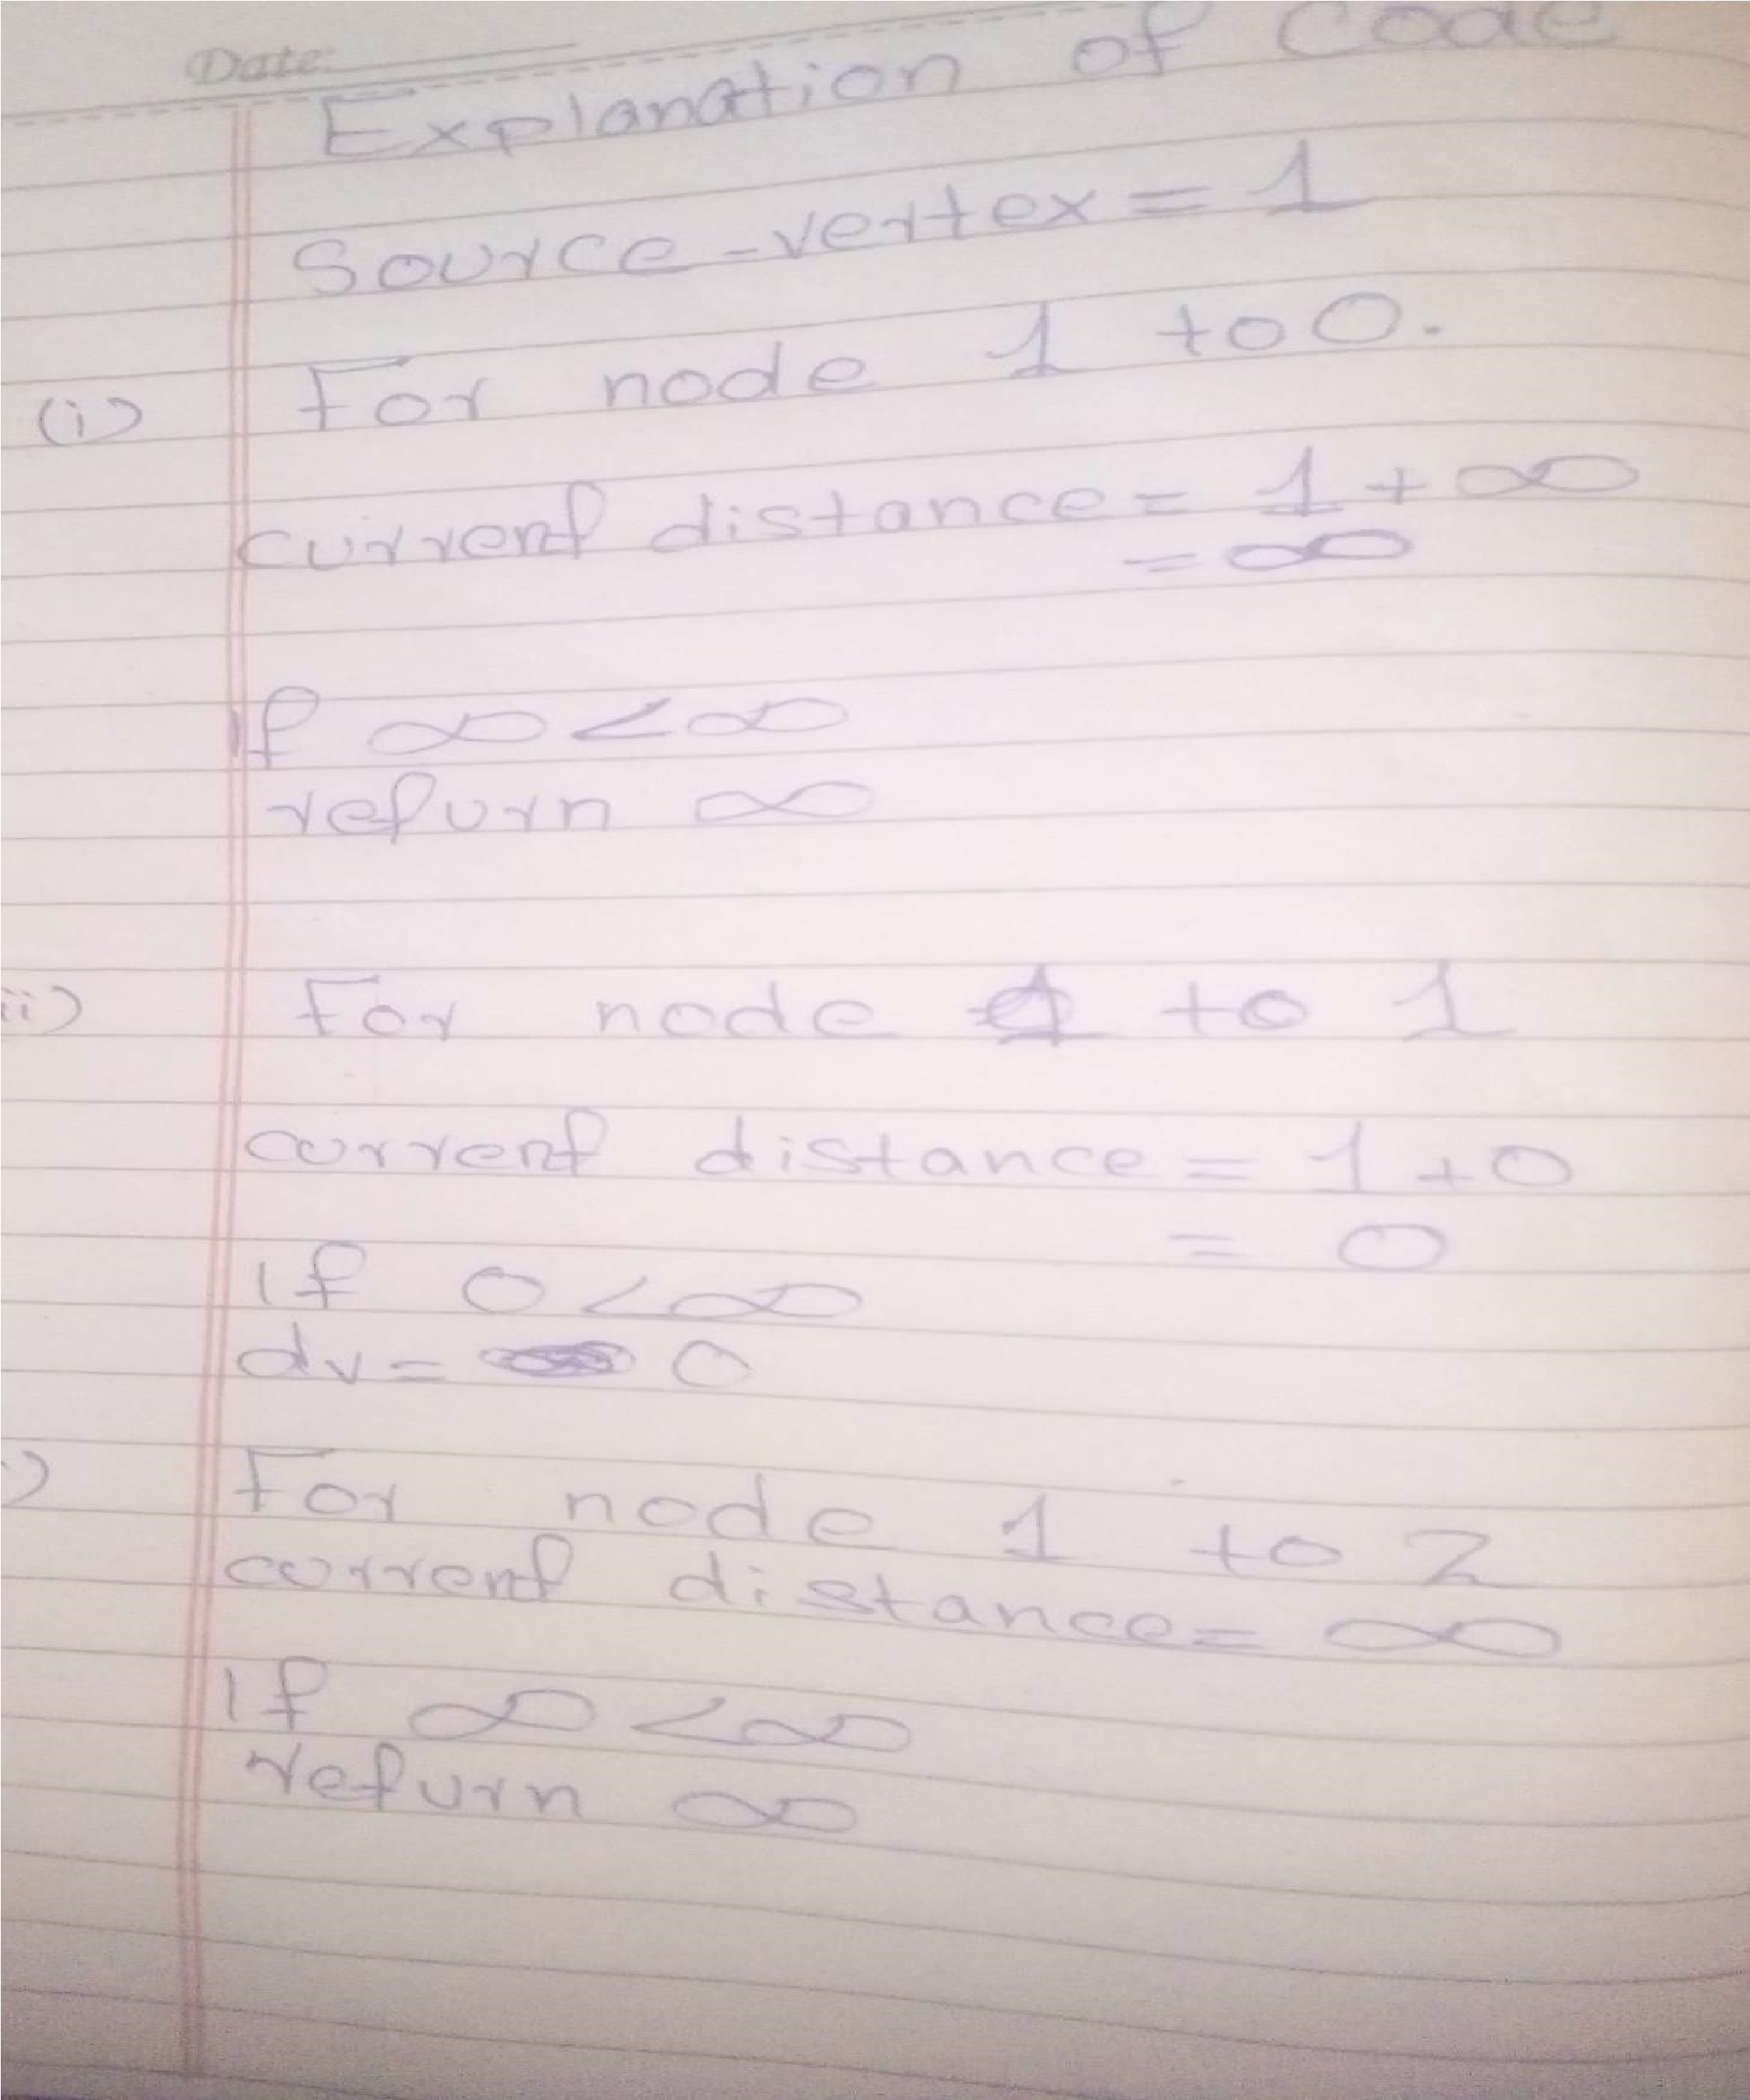 Date:
Explanation of Code
Source-vertex = 1
(i) For node 1 to 0.
current distance = 1 + ∞
= ∞
If ∞ < ∞
return ∞
ii) For node 1 to 1
current distance = 1 + 0
= 0
If 0 < ∞
dv = 0
) For node 1 to 2
current distance = ∞
If ∞ < ∞
return ∞